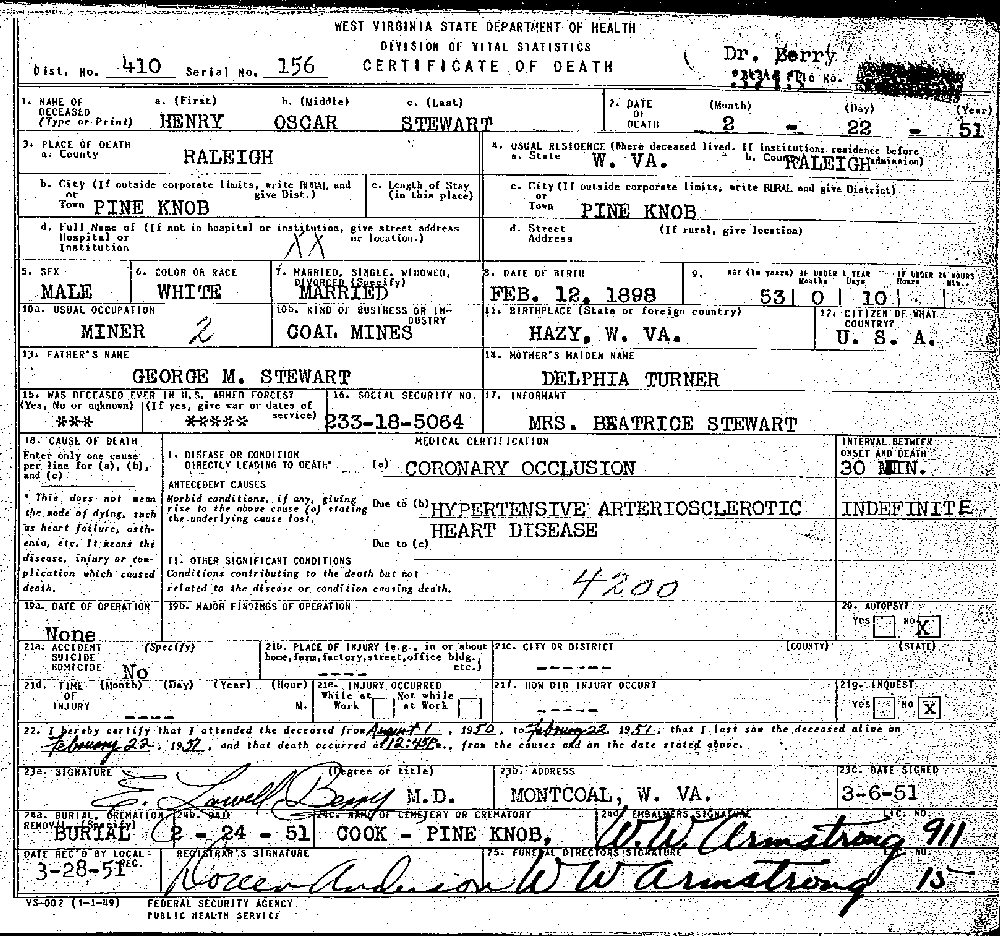 WEST VIRGINIA STATE DEPARTMENT OF HEALTH
DIVISION OF VITAL STATISTICS
CERTIFICATE OF DEATH
Dr. Berry
Dist. No. 410 Serial No. 156
File No.
1. NAME OF DECEASED (Type or Print) a. (First) HENRY b. (Middle) OSCAR c. (Last) STEWART
2. DATE OF DEATH (Month) (Day) (Year) 2 - 22 - 51
3. PLACE OF DEATH a. County RALEIGH
4. USUAL RESIDENCE (Where deceased lived. If institution: residence before admission) a. State W. VA. b. County RALEIGH
b. City (If outside corporate limits, write RURAL and give Dist.) or Town PINE KNOB
c. Length of Stay (in this place)
c. City (If outside corporate limits, write RURAL and give District) or Town PINE KNOB
d. Full Name of (If not in hospital or institution, give street address or location.) Hospital or Institution XX
d. Street Address (If rural, give location)
5. SEX MALE
6. COLOR OR RACE WHITE
7. MARRIED, SINGLE, WIDOWED, DIVORCED (Specify) MARRIED
8. DATE OF BIRTH FEB. 12, 1898
9. AGE (In years) IF UNDER 1 YEAR Months Days IF UNDER 24 HOURS Hours Min. 53 | 0 | 10
10a. USUAL OCCUPATION MINER 2
10b. KIND OF BUSINESS OR INDUSTRY COAL MINES
11. BIRTHPLACE (State or foreign country) HAZY, W. VA.
12. CITIZEN OF WHAT COUNTRY? U. S. A.
13. FATHER'S NAME GEORGE M. STEWART
14. MOTHER'S MAIDEN NAME DELPHIA TURNER
15. WAS DECEASED EVER IN U.S. ARMED FORCES? (Yes, No or unknown) *** (If yes, give war or dates of service) *****
16. SOCIAL SECURITY NO. 233-18-5064
17. INFORMANT MRS. BEATRICE STEWART
18. CAUSE OF DEATH Enter only one cause per line for (a), (b), and (c)
* This does not mean the mode of dying, such as heart failure, asthenia, etc. It means the disease, injury or complication which caused death.
MEDICAL CERTIFICATION
INTERVAL BETWEEN ONSET AND DEATH
I. DISEASE OR CONDITION DIRECTLY LEADING TO DEATH* (a) CORONARY OCCLUSION 30 MIN.
ANTECEDENT CAUSES
Morbid conditions, if any, giving rise to the above cause (a) stating the underlying cause last.
Due to (b) HYPERTENSIVE ARTERIOSCLEROTIC HEART DISEASE INDEFINITE
Due to (c)
II. OTHER SIGNIFICANT CONDITIONS
Conditions contributing to the death but not related to the disease or condition causing death.
4200
19a. DATE OF OPERATION None
19b. MAJOR FINDINGS OF OPERATION
20. AUTOPSY? YES NO X
21a. ACCIDENT SUICIDE HOMICIDE (Specify) No
21b. PLACE OF INJURY (e.g., in or about home, farm, factory, street, office bldg. etc.) ----
21c. CITY OR DISTRICT (COUNTY) (STATE) ------
21d. TIME OF INJURY (Month) (Day) (Year) (Hour) M. ----
21e. INJURY OCCURRED While at Work Not while at Work
21f. HOW DID INJURY OCCUR? ------
21g. INQUEST YES NO X
22. I hereby certify that I attended the deceased from August 1, 1950, to February 22, 1951, that I last saw the deceased alive on
February 22, 1951, and that death occurred at 12:45P m., from the causes and on the date stated above.
23a. SIGNATURE (Degree or title) E. Lowell Berry M.D.
23b. ADDRESS MONTCOAL, W. VA.
23c. DATE SIGNED 3-6-51
24a. BURIAL, CREMATION REMOVAL (Specify) BURIAL
24b. DATE 2 - 24 - 51
24c. NAME OF CEMETERY OR CREMATORY COOK - PINE KNOB.
24d. EMBALMERS SIGNATURE W.W. Armstrong LIC. NO. 911
DATE REC'D BY LOCAL REG. 3-28-51
REGISTRAR'S SIGNATURE Doreen Anderson
25. FUNERAL DIRECTORS SIGNATURE W W Armstrong NO. 15
VS-002 (1-1-49) FEDERAL SECURITY AGENCY
PUBLIC HEALTH SERVICE